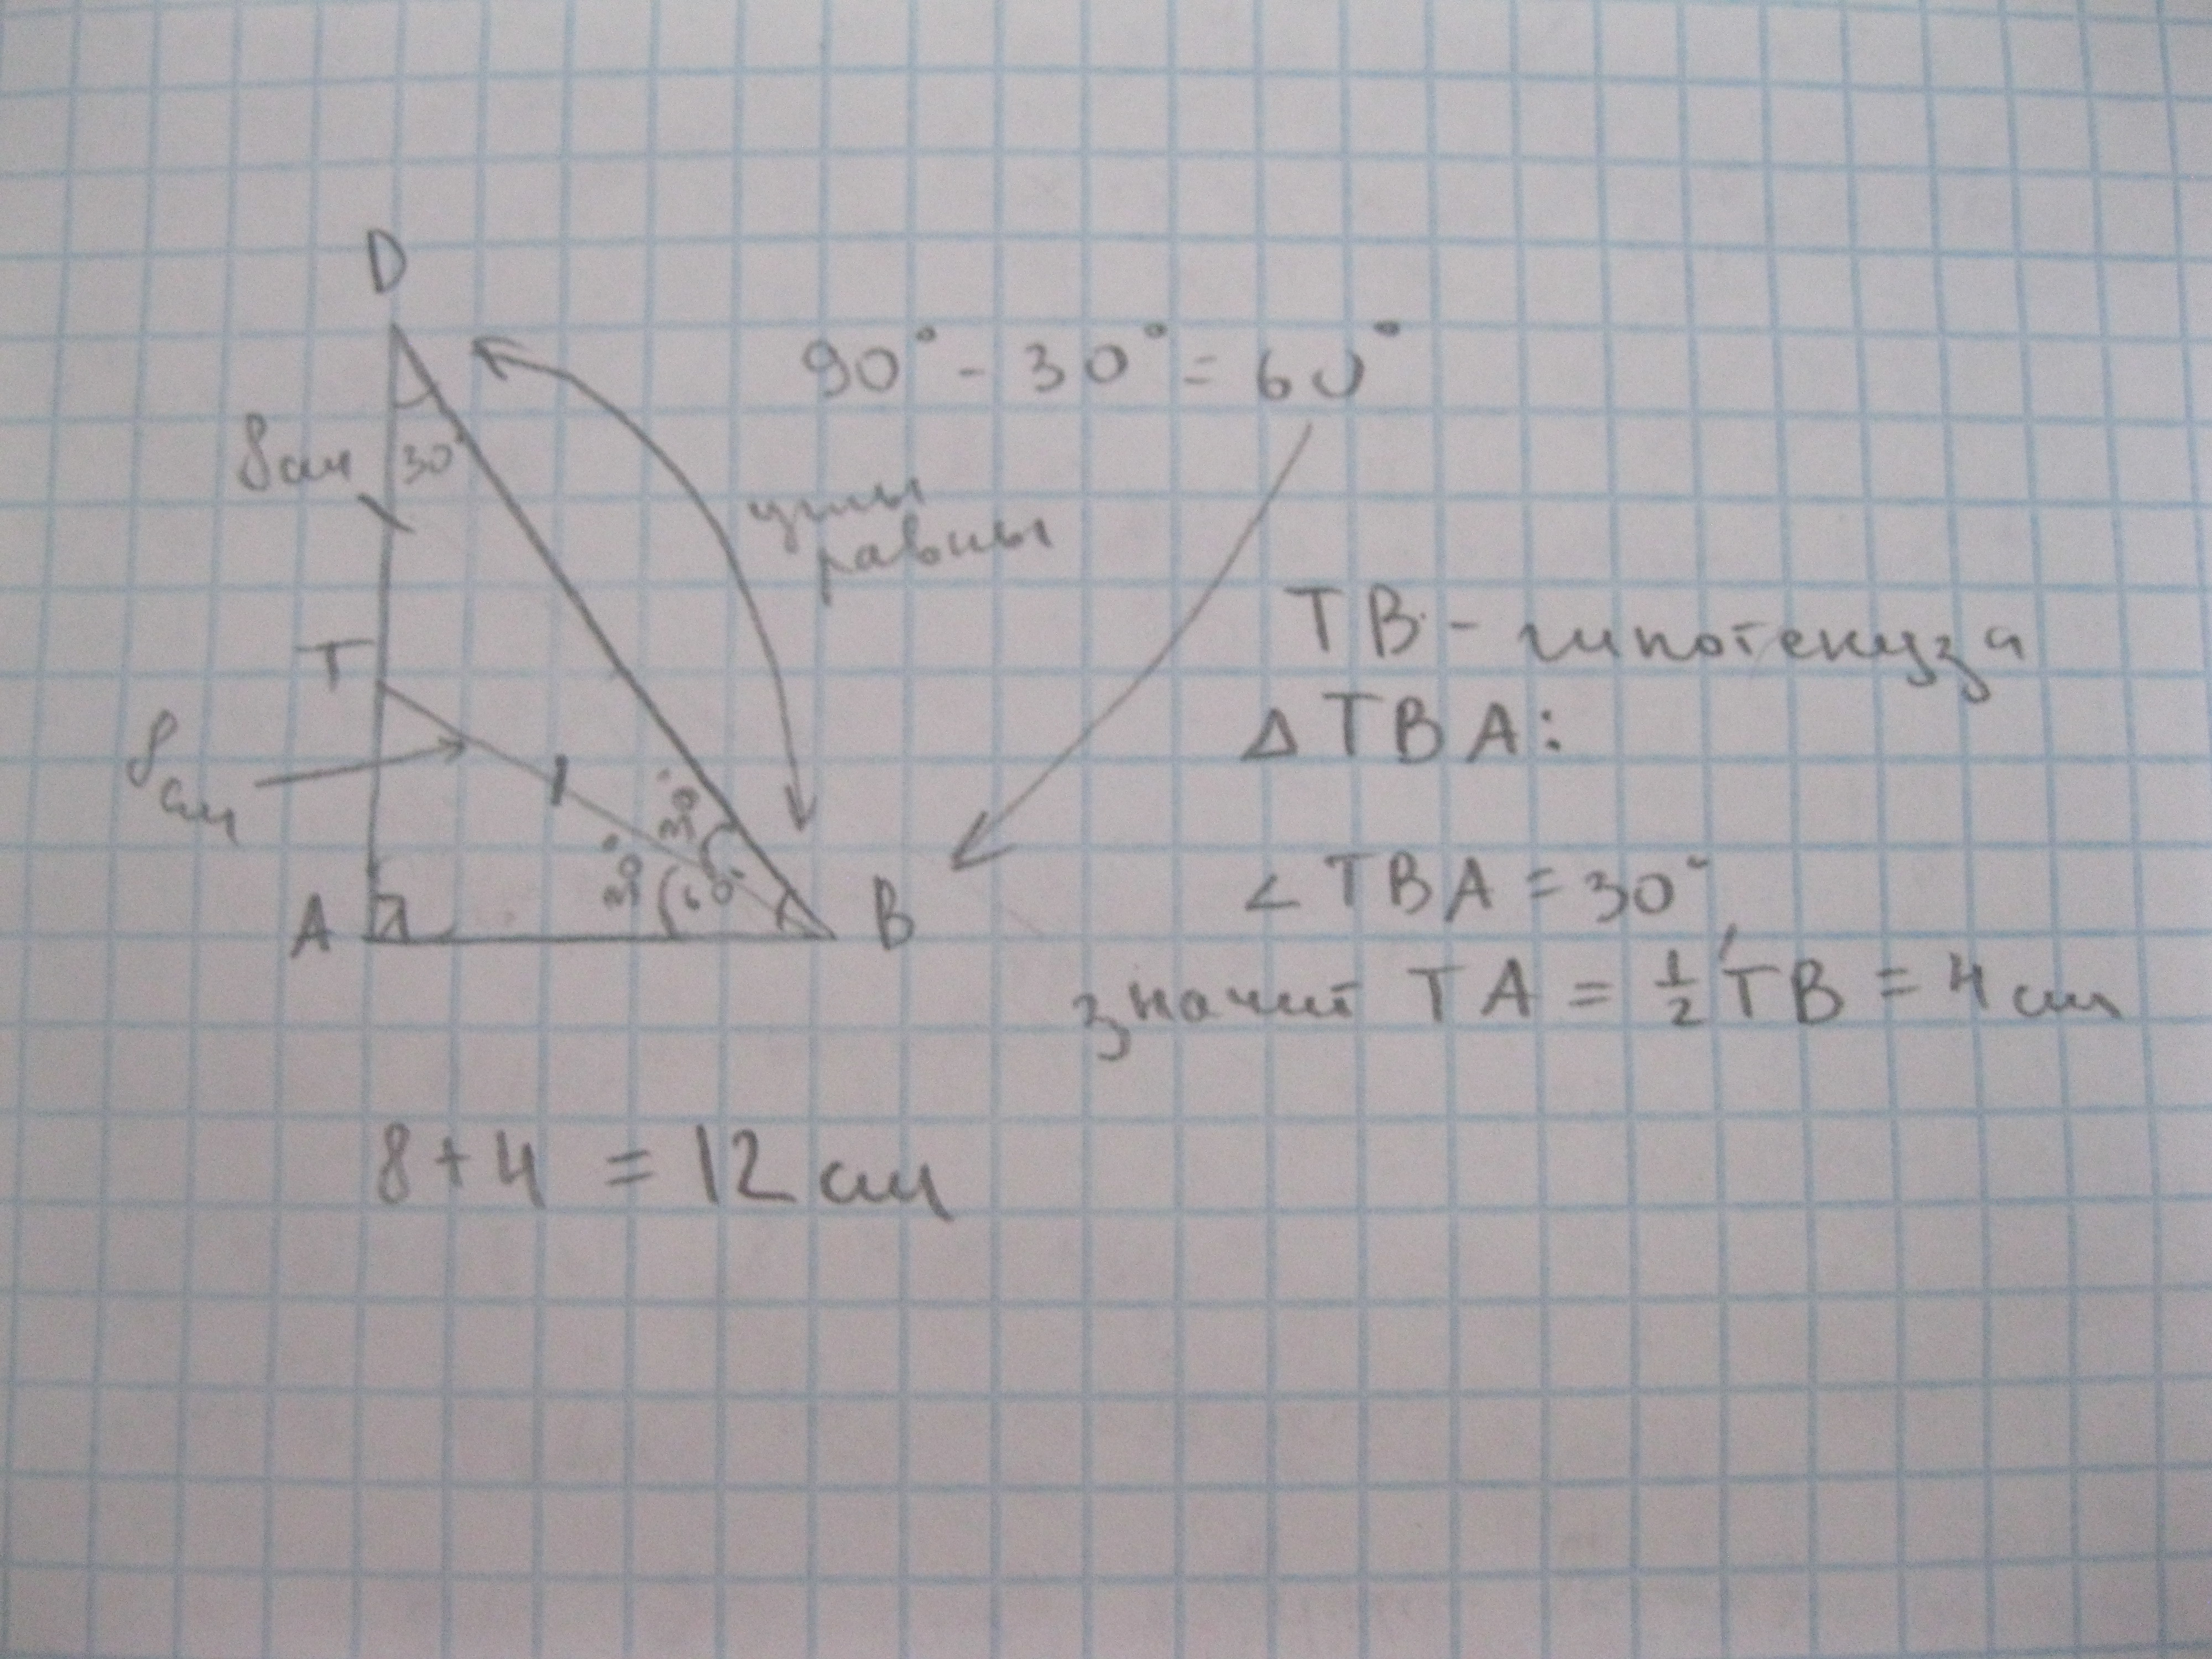 D
90° - 30° = 60°
8 см
30°
углы
равны
T
TB - гипотенуза
Δ TBA:
8
см
30°
30°
60°
A
B
∠ TBA = 30°,
значит TA = 1/2 TB = 4 см
8 + 4 = 12 см